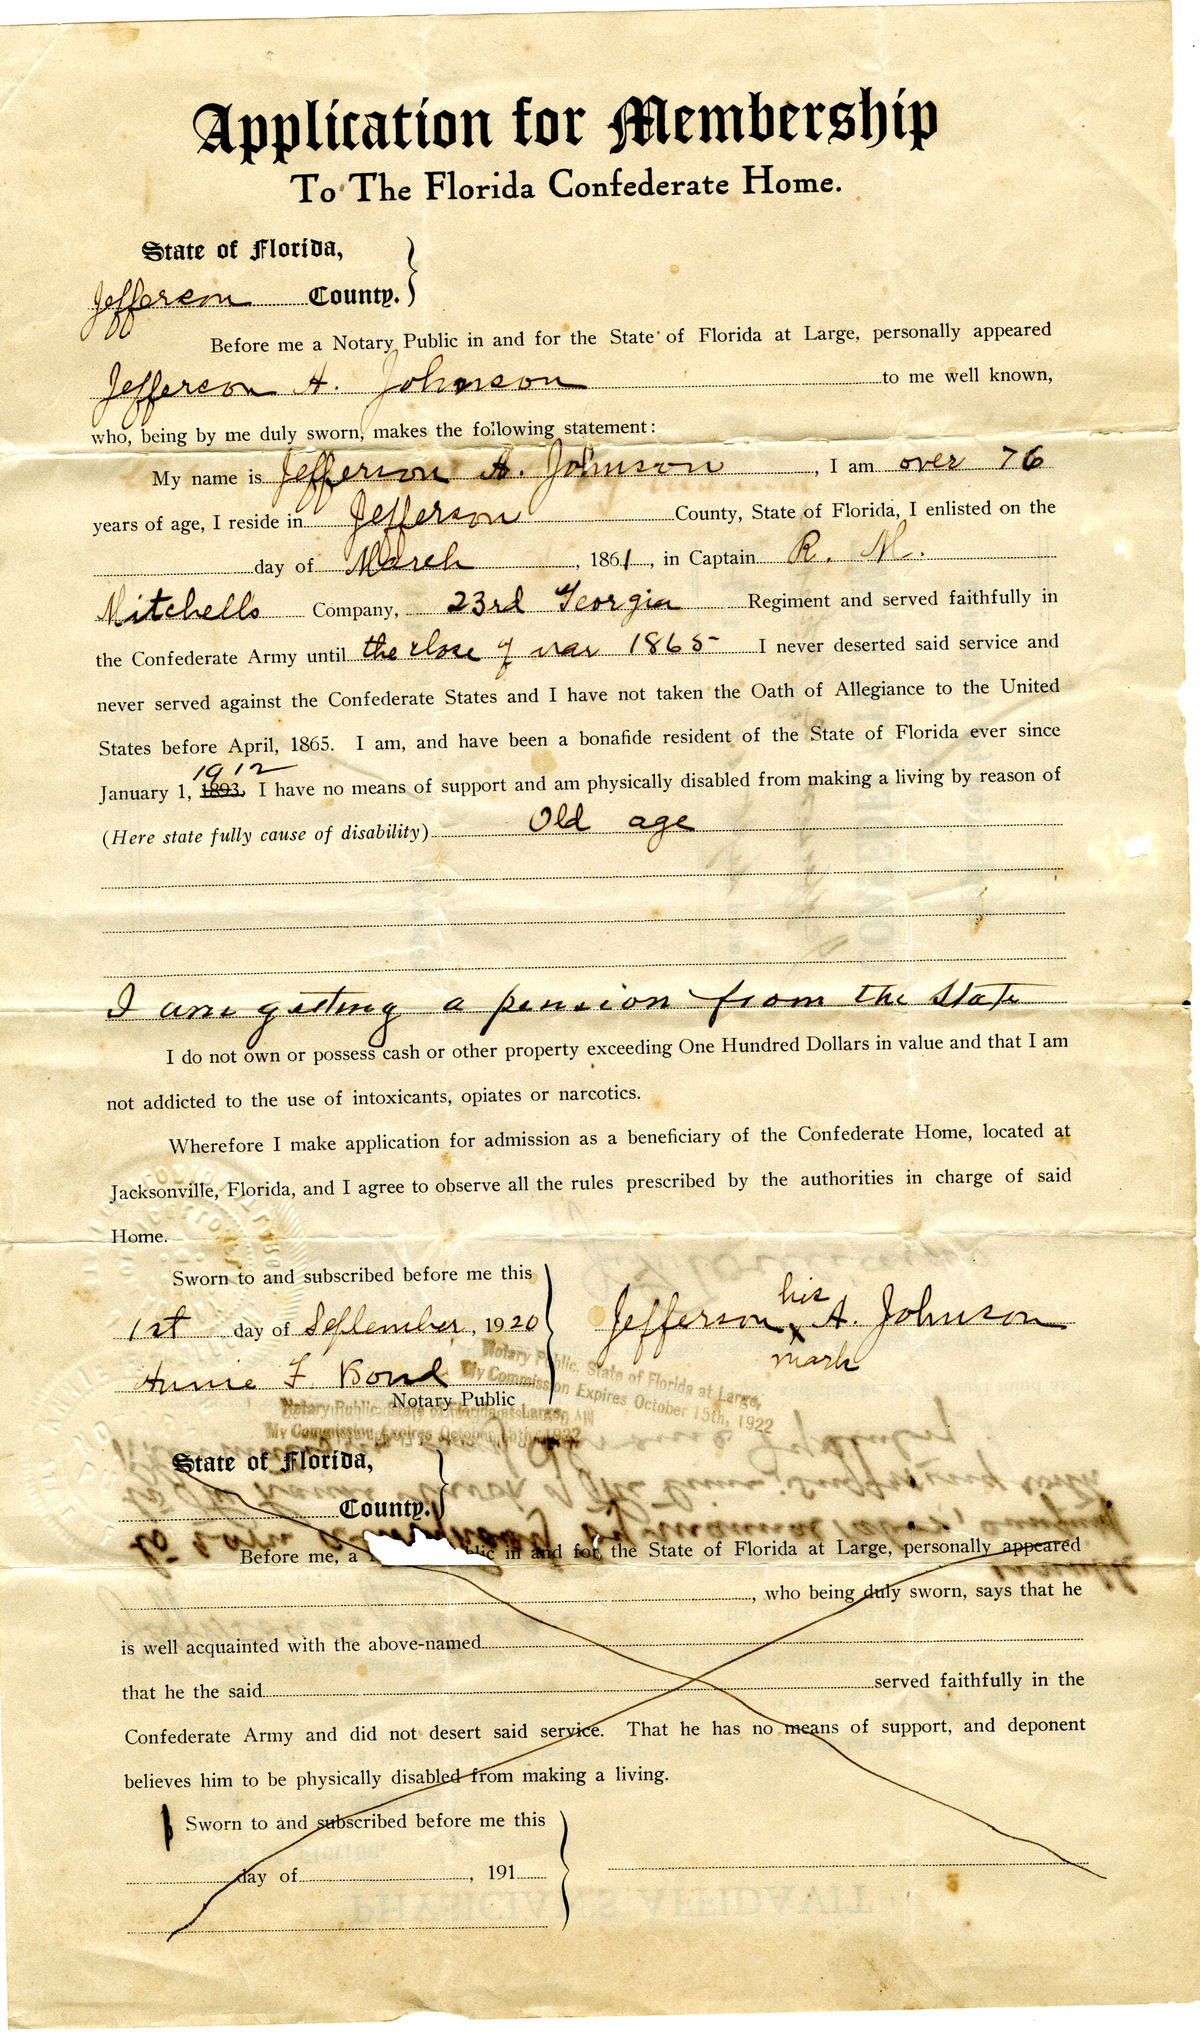 Application for Membership
To The Florida Confederate Home.
State of Florida,
Jefferson County.
Before me a Notary Public in and for the State of Florida at Large, personally appeared
Jefferson A. Johnson to me well known,
who, being by me duly sworn, makes the following statement:
My name is Jefferson A. Johnson, I am over 76
years of age, I reside in Jefferson County, State of Florida, I enlisted on the
day of March, 1861, in Captain R. M.
Mitchells Company, 23rd Georgia Regiment and served faithfully in
the Confederate Army until the close of war 1865 I never deserted said service and
never served against the Confederate States and I have not taken the Oath of Allegiance to the United
States before April, 1865. I am, and have been a bonafide resident of the State of Florida ever since
1912
January 1, 1893. I have no means of support and am physically disabled from making a living by reason of
(Here state fully cause of disability) Old age
I am getting a pension from the State
I do not own or possess cash or other property exceeding One Hundred Dollars in value and that I am
not addicted to the use of intoxicants, opiates or narcotics.
Wherefore I make application for admission as a beneficiary of the Confederate Home, located at
Jacksonville, Florida, and I agree to observe all the rules prescribed by the authorities in charge of said
Home.
Sworn to and subscribed before me this
1st day of September, 1920
his
Jefferson x A. Johnson
mark
Annie F. Bond
Notary Public
Notary Public, State of Florida at Large,
My Commission Expires October 15th, 1922
Notary Public State of Florida at Large,
My Commission Expires October 15th, 1922
State of Florida,
County.
Before me, a in and for the State of Florida at Large, personally appeared
, who being duly sworn, says that he
is well acquainted with the above-named
that he the said served faithfully in the
Confederate Army and did not desert said service. That he has no means of support, and deponent
believes him to be physically disabled from making a living.
Sworn to and subscribed before me this
day of , 191
PHYSICIAN'S AFFIDAVIT